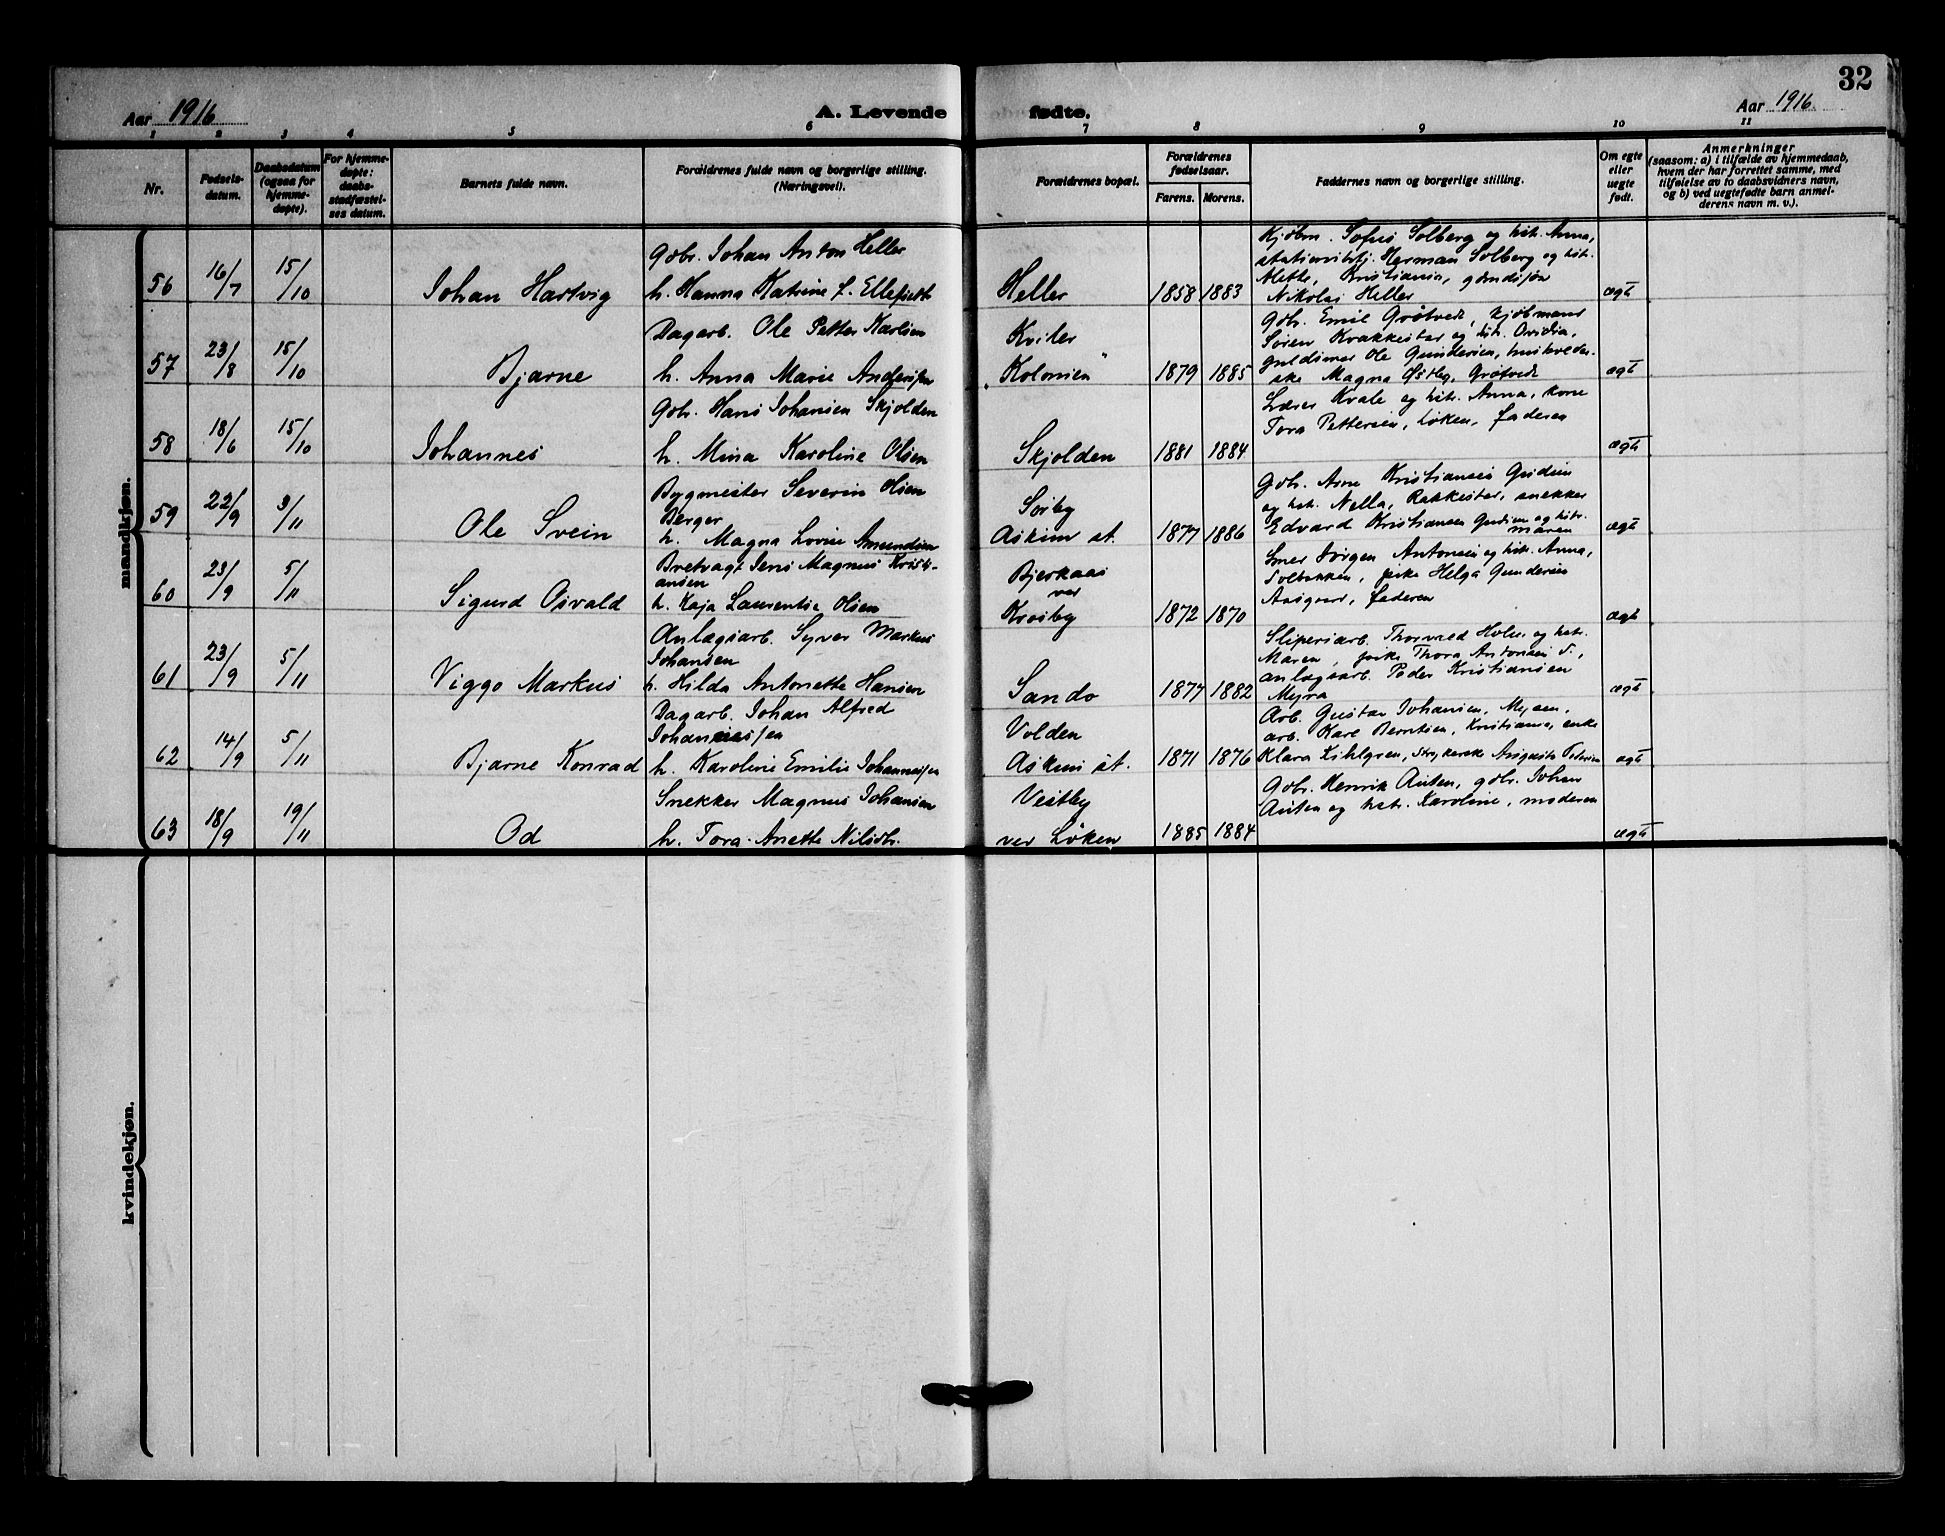 32
Aar 1916
A. Levende
fødte.
Aar 1916
1 2 3 4 5 6 7 8 9 10 11
Nr.
Fødsels-
datum.
Daabsdatum
(ogsaa for
hjemme-
døpte).
For hjemme-
døpte:
daabs-
stadfæstel-
ses datum.
Barnets fulde navn.
Forældrenes fulde navn og borgerlige stilling.
(Næringsvei).
Forældrenes bopæl.
Forældrenes
fødselsaar.
Farens. Morens.
Faddernes navn og borgerlige stilling.
Om egte
eller
uegte
født.
Anmerkninger
(saasom: a) i tilfælde av hjemmedaab,
hvem der har forrettet samme, med
tilføielse av to daabsvidners navn,
og b) ved uegtefødte barn anmel-
derens navn m. v.).
mandkjøn.
56 16/7 15/10 Johan Hartvig
Gdbr. Johan Anton Heller
h. Hanna Katrine f. Ellefsdtr
Heller
1858 1883
Kjøbm. Sofus Solberg og hst. Anna,
stationsbtj. Herman Solberg og hst.
Mette, Kristiania, gdmdsføn
Nikolai Heller
ægt
57 23/8 15/10 Bjarne
Dagarb. Ole Petter Karlsen
h. Anna Marie Andersen
Kviler
"Kolonien"
1879 1885
Gdbr. Emil Grøtvedt, kjøbmand
Søren Krakkestar og hst. Ovidia,
guldsmed Ole Gundersen, husholder-
ske Magna Østby, Grøtvedt
ægt
58 18/6 15/10 Johannes
Gdbr. Hans Johansen Skjolden
h. Mina Karoline Olsen
Skjolden
1881 1884
Lærer Kvale og hst. Anna, kone
Tora Pettersen, Løken, faderen
ægt
59 22/9 3/11 Ole Svein
Bygmester Severin Olsen
Berger
h. Magna Lovise Amundsen
Sørby
Askim st.
1877 1886
Gdb. Arne Kristiansen Gudim
og hst. Nella, Rakkestad, snekker
Edvard Kristiansen Gudim og hst.
Maren
ægt
60 23/9 5/11 Sigurd Osvald
Bretvagt Jens Magnus Kristi-
ansen
h. Kaja Laurentse Olsen
Bjerkaas
ver
Krosby
1872 1870
Smed Jørgen Antonsen og hst. Anna,
Solbakken, pike Helga Gundersen
Aasgaard, faderen
ægt
61 23/9 5/11 Viggo Markus
Anlægsarb. Syver Markus
Johansen
h. Hilda Antonette Hansen
Sando
1877 1882
Sliperiarb. Thorvald Holm og hst.
Maren, pike Thora Antonsen S.,
anlægsarb. Peder Kristiansen
Myra
ægt
62 14/9 5/11 Bjarne Konrad
Dagarb. Johan Alfred
Johannessen
h. Karoline Emilie Johannessen
Volden
Askim st.
1871 1876
Arb. Gustav Johansen, Mysen,
arb. Karl Berntsen, Kristiania, enke
Klara Kihlgren, Strykerske Augusta Pedersen
ægt
63 18/9 19/11 Od
Snekker Magnus Johansen
h. Tora Anette Nilsdtr.
Vestby
ver Løken
1885 1884
Gdbr. Henrik Auten, gdbr. Johan
Auten og hst. Karoline, moderen
ægt
kvindekjøn.